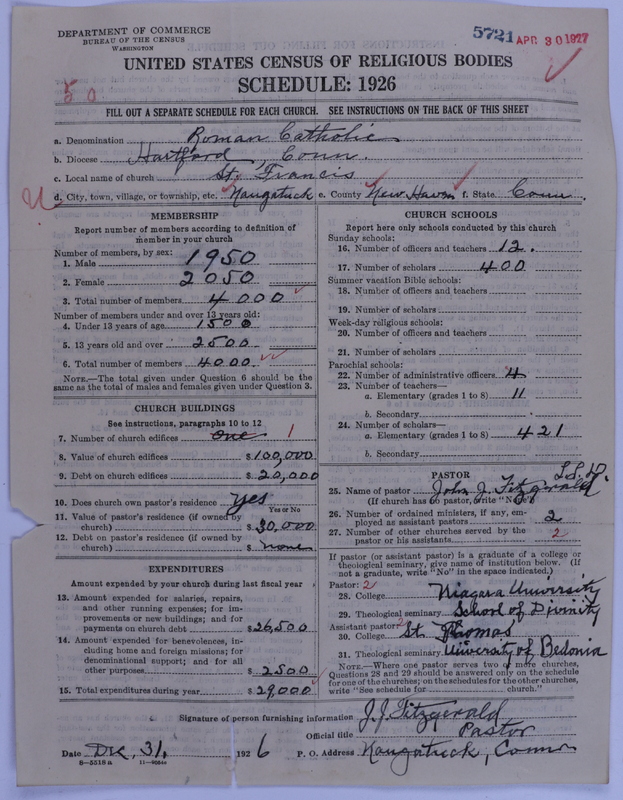 DEPARTMENT OF COMMERCE
BUREAU OF THE CENSUS
WASHINGTON
5721 APR 30 1927
UNITED STATES CENSUS OF RELIGIOUS BODIES
SCHEDULE: 1926
50
FILL OUT A SEPARATE SCHEDULE FOR EACH CHURCH. SEE INSTRUCTIONS ON THE BACK OF THIS SHEET
a. Denomination Roman Catholic
b. Diocese Hartford, Conn.
c. Local name of church St. Francis
d. City, town, village, or township, etc. Naugatuck e. County New Haven f. State Conn.
MEMBERSHIP
Report number of members according to definition of
member in your church
Number of members, by sex:
1. Male 1950
2. Female 2050
3. Total number of members 4000
Number of members under and over 13 years old:
4. Under 13 years of age 1500
5. 13 years old and over 2500
6. Total number of members 4000
NOTE.—The total given under Question 6 should be the
same as the total of males and females given under Question 3.
CHURCH BUILDINGS
See instructions, paragraphs 10 to 12
7. Number of church edifices one 1
8. Value of church edifices $100,000
9. Debt on church edifices $20,000
10. Does church own pastor's residence yes
Yes or No
11. Value of pastor's residence (if owned by
church) $30,000
12. Debt on pastor's residence (if owned by
church) $none
EXPENDITURES
Amount expended by your church during last fiscal year
13. Amount expended for salaries, repairs,
and other running expenses; for im-
provements or new buildings; and for
payments on church debt $26,500
14. Amount expended for benevolences, in-
cluding home and foreign missions; for
denominational support; and for all
other purposes $2500
15. Total expenditures during year $29,000
CHURCH SCHOOLS
Report here only schools conducted by this church
Sunday schools:
16. Number of officers and teachers 12.
17. Number of scholars 400
Summer vacation Bible schools:
18. Number of officers and teachers
19. Number of scholars
Week-day religious schools:
20. Number of officers and teachers
21. Number of scholars
Parochial schools:
22. Number of administrative officers 4
23. Number of teachers—
a. Elementary (grades 1 to 8) 11
b. Secondary
24. Number of scholars—
a. Elementary (grades 1 to 8) 421
b. Secondary
PASTOR
25. Name of pastor John J. Fitzgerald
(If church has no pastor, write "No")
26. Number of ordained ministers, if any, em-
ployed as assistant pastors 2
27. Number of other churches served by the
pastor or his assistants 2
If pastor (or assistant pastor) is a graduate of a college or
theological seminary, give name of institution below. (If
not a graduate, write "No" in the space indicated.)
Pastor: 2
28. College Niagara University
29. Theological seminary School of Divinity
Assistant pastor: 2
30. College St. Thomas
31. Theological seminary University of Bedonia
NOTE.—Where one pastor serves two or more churches,
Questions 28 and 29 should be answered only on the schedule
for one of the churches; on the schedules for the other churches,
write "See schedule for church."
Signature of person furnishing information J. J. Fitzgerald
Official title Pastor
Date Dec, 31, 1926 P. O. Address Naugatuck, Conn
8—5518a